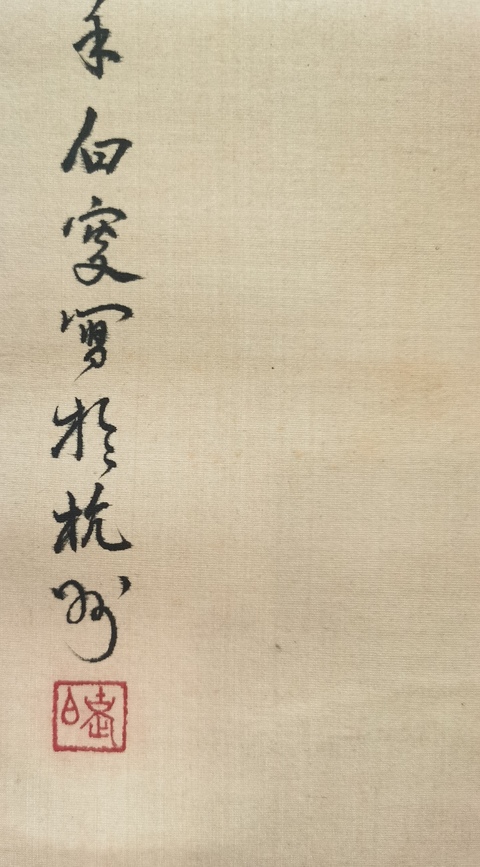 白叟寫於杭州